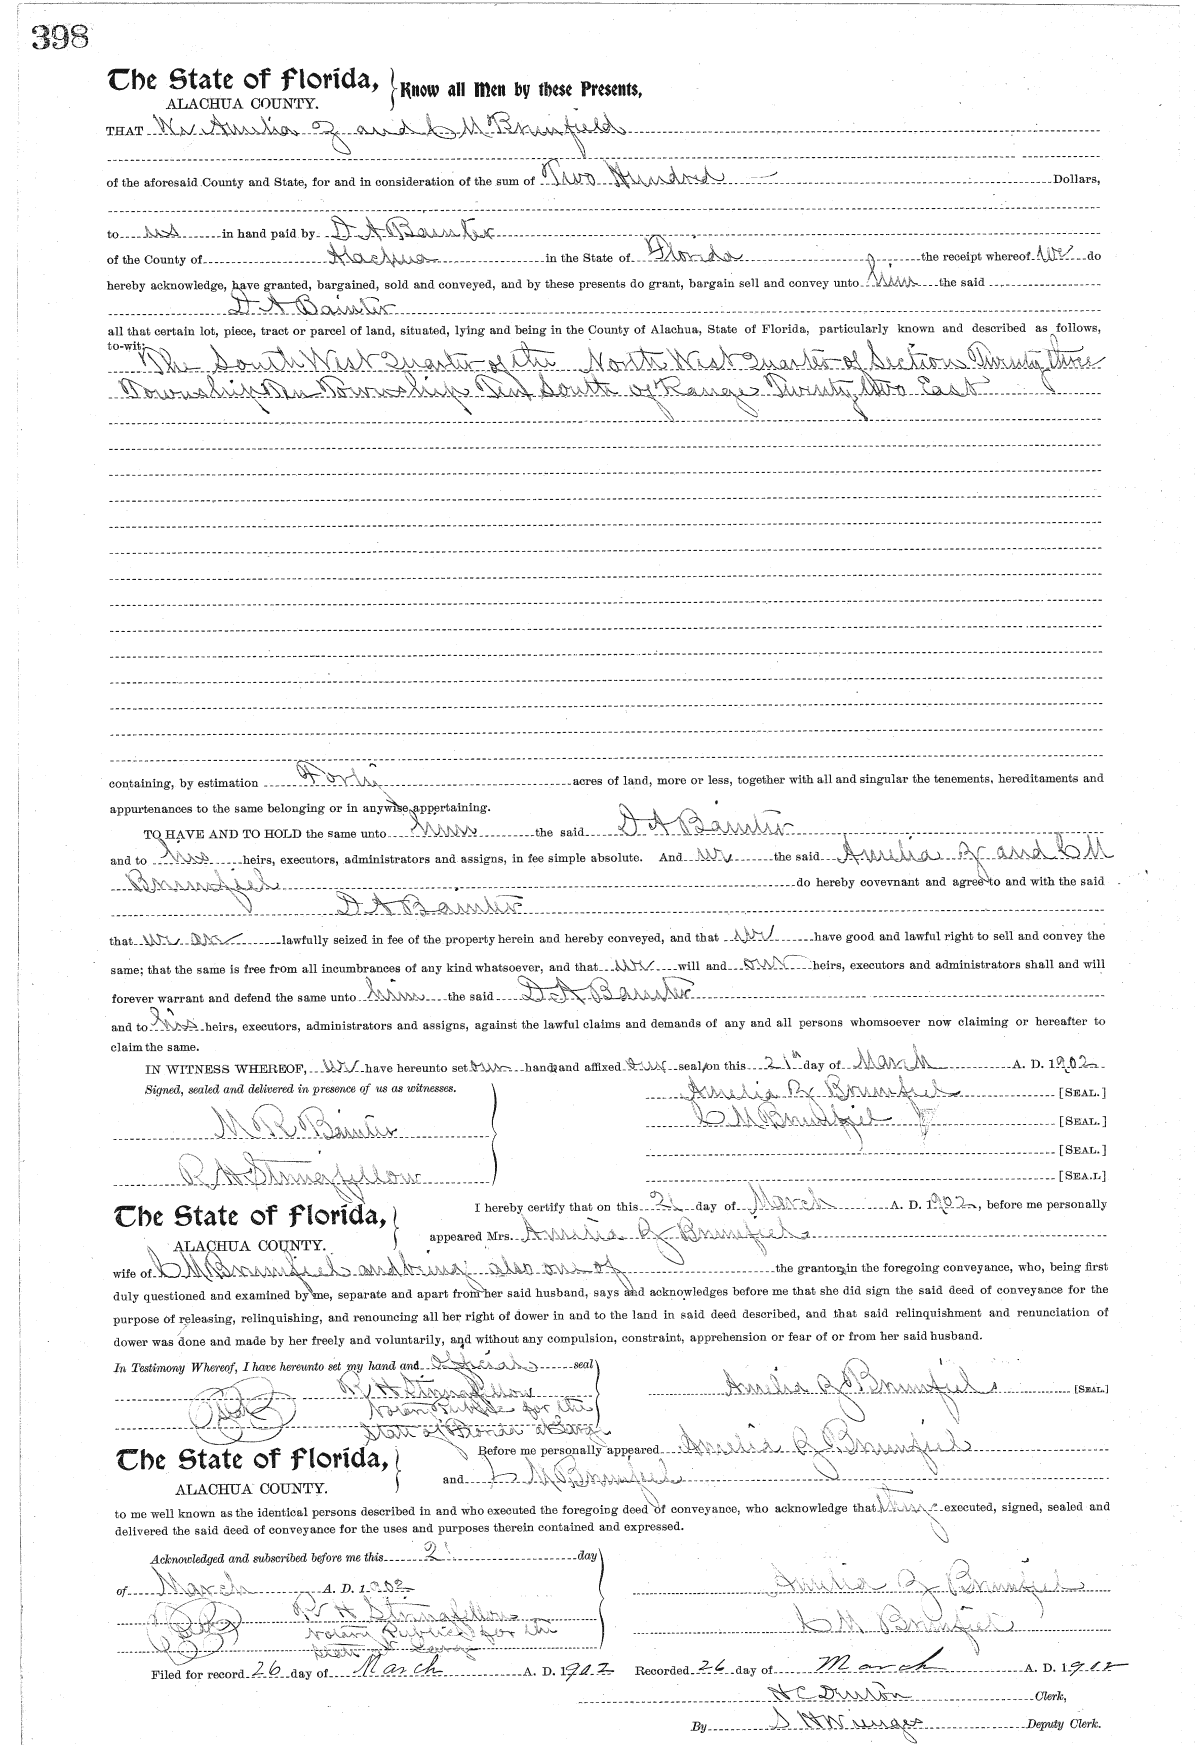 398
The State of Florida, } Know all Men by these Presents,
ALACHUA COUNTY.
THAT We Amelia Z and C M Brumfield
of the aforesaid County and State, for and in consideration of the sum of Two Hundred Dollars,
to us in hand paid by D A Bainter
of the County of Alachua in the State of Florida the receipt whereof we do
hereby acknowledge, have granted, bargained, sold and conveyed, and by these presents do grant, bargain sell and convey unto him the said
D A Bainter
all that certain lot, piece, tract or parcel of land, situated, lying and being in the County of Alachua, State of Florida, particularly known and described as follows,
to-wit:
The South West Quarter of the North West Quarter of Section Twenty three
Township Ten Township Ten South of Range Twenty two East
containing, by estimation Forty acres of land, more or less, together with all and singular the tenements, hereditaments and
appurtenances to the same belonging or in anywise appertaining.
TO HAVE AND TO HOLD the same unto him the said D A Bainter
and to his heirs, executors, administrators and assigns, in fee simple absolute. And we the said Amelia Z and C M
Brumfiel do hereby covevnant and agree to and with the said
D A Bainter
that we are lawfully seized in fee of the property herein and hereby conveyed, and that we have good and lawful right to sell and convey the
same; that the same is free from all incumbrances of any kind whatsoever, and that we will and our heirs, executors and administrators shall and will
forever warrant and defend the same unto him the said D A Bainter
and to his heirs, executors, administrators and assigns, against the lawful claims and demands of any and all persons whomsoever now claiming or hereafter to
claim the same.
IN WITNESS WHEREOF, we have hereunto set our hands and affixed our seals on this 21st day of March A. D. 1902
Signed, sealed and delivered in presence of us as witnesses. Amelia Z Brumfiel [SEAL.]
C M Brumfiel [SEAL.]
M R Bainter
[SEAL.]
R H Stringfellow [SEA.L]
The State of Florida, } I hereby certify that on this 21 day of March A. D. 1902, before me personally
ALACHUA COUNTY. appeared Mrs. Amelia Z Brumfiel
wife of C M Brumfiel and being also one of the grantors in the foregoing conveyance, who, being first
duly questioned and examined by me, separate and apart from her said husband, says and acknowledges before me that she did sign the said deed of conveyance for the
purpose of releasing, relinquishing, and renouncing all her right of dower in and to the land in said deed described, and that said relinquishment and renunciation of
dower was done and made by her freely and voluntarily, and without any compulsion, constraint, apprehension or fear of or from her said husband.
In Testimony Whereof, I have hereunto set my hand and official seal
R H Stringfellow Amelia Z Brumfiel [SEAL.]
Notary Public for the
State of Florida at Large
The State of Florida, } Before me personally appeared Amelia Z Brumfiel
ALACHUA COUNTY. and C M Brumfiel
to me well known as the identical persons described in and who executed the foregoing deed of conveyance, who acknowledge that they executed, signed, sealed and
delivered the said deed of conveyance for the uses and purposes therein contained and expressed.
Acknowledged and subscribed before me this 21 day
of March A. D. 1902 Amelia Z Brumfiel
R H Stringfellow C M Brumfiel
Notary Public for the
State at Large
Filed for record 26 day of March A. D. 1902 Recorded 26 day of March A. D. 1902
H C Denton Clerk,
By S H Wienges Deputy Clerk.